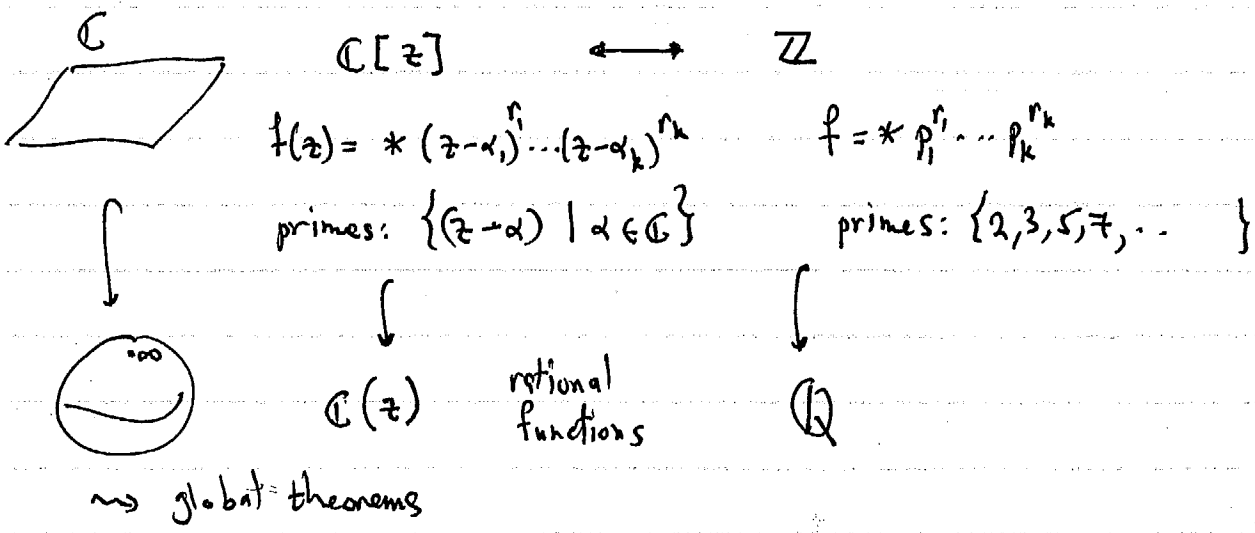 ℂ
ℂ[z] ⟷ ℤ
f(z) = * (z-α₁)^{r₁} ⋯ (z-α_k)^{r_k}
f = * p₁^{r₁} ⋯ p_k^{r_k}
primes: {(z-α) | α ∈ ℂ}
primes: {2,3,5,7,.. }
∞
ℂ(z)
rational
functions
ℚ
⇝ global theorems